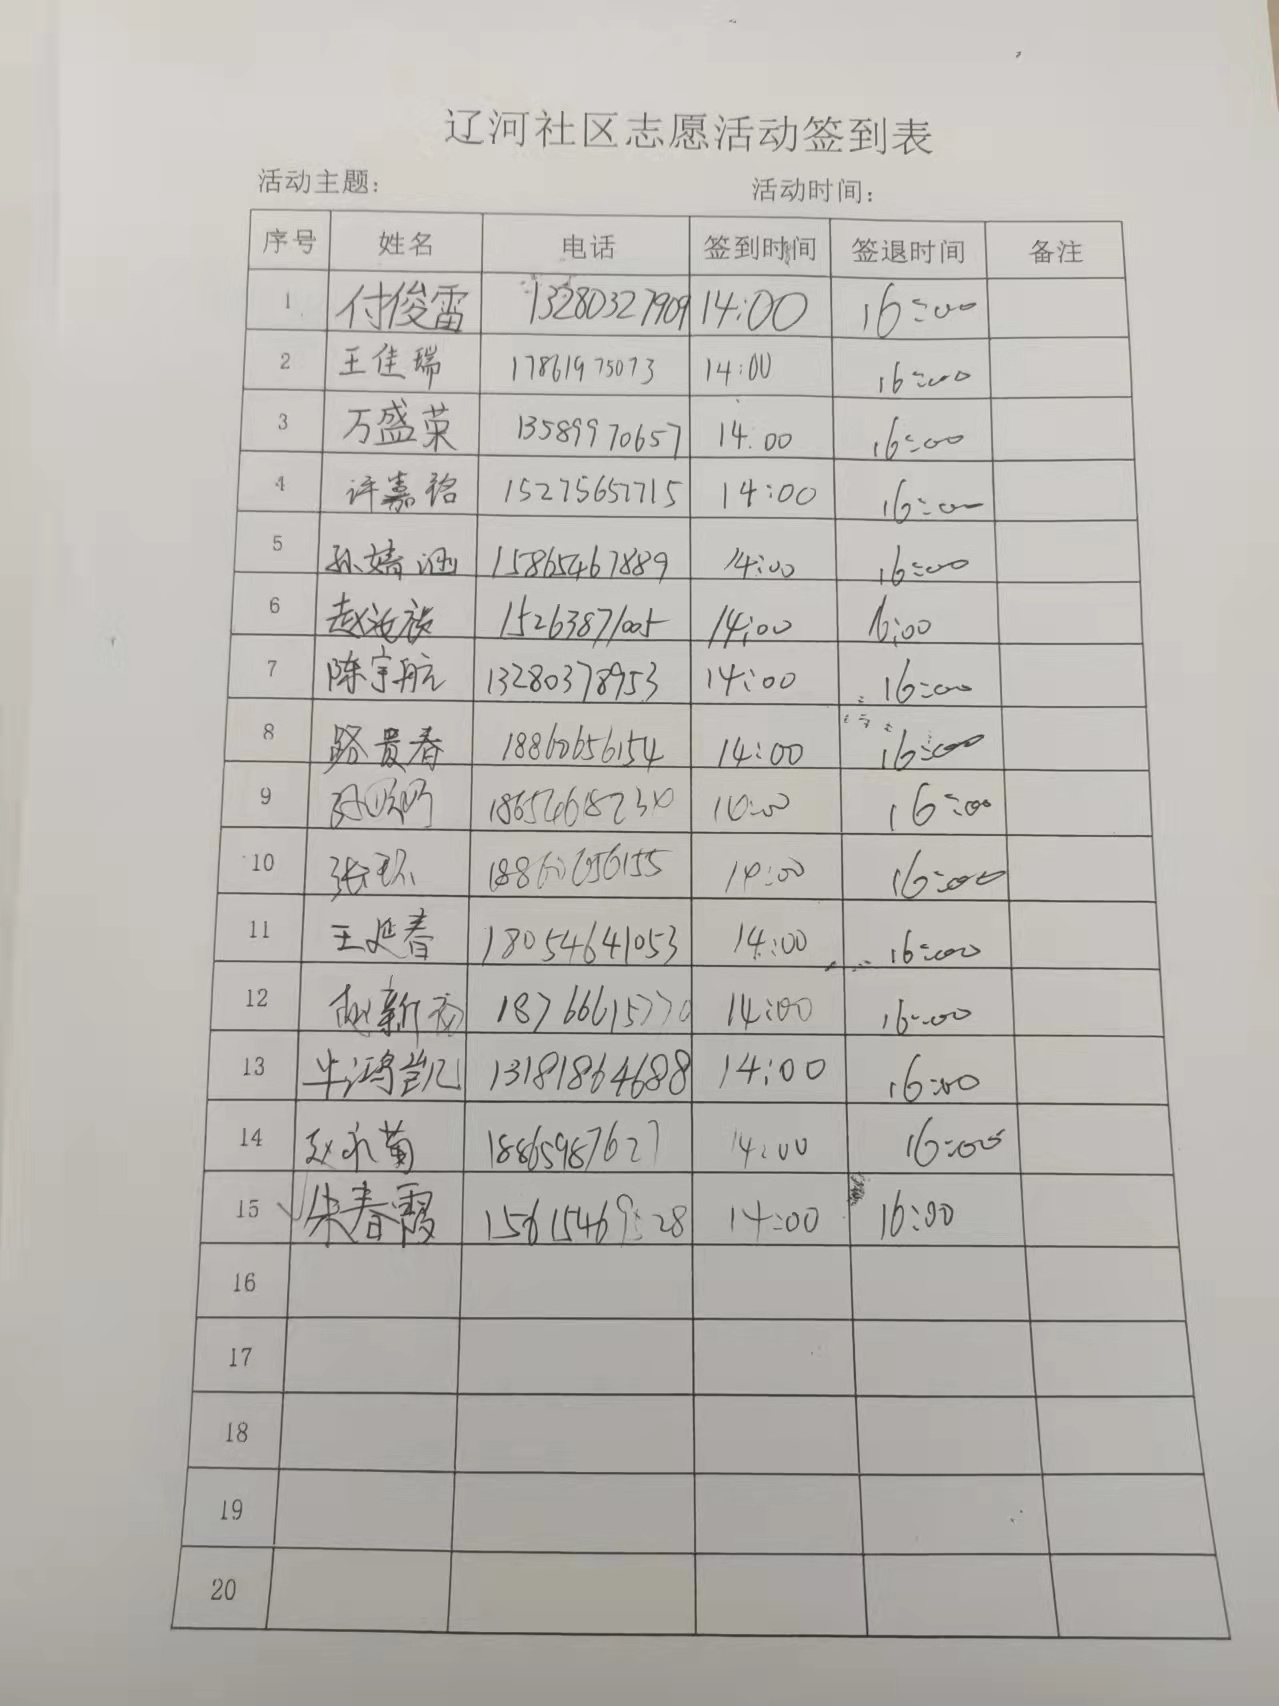 辽河社区志愿活动签到表
活动主题： 活动时间：
序号 姓名 电话 签到时间 签退时间 备注
1 付俊雷 13280327909 14:00 16:00
2 王佳瑞 17861975073 14:00 16:00
3 万盛荣 13589970657 14:00 16:00
4 许嘉铭 15275657715 14:00 16:00
5 孙婧涵 15865467889 14:00 16:00
6 15263871005 14:00 16:00
7 陈宇航 13280378953 14:00 16:00
8 路贵春 18860656154 14:00 16:00
9 16:00
10 18860656155 14:00 16:00
11 王延春 18054641053 14:00 16:00
12 18766615770 14:00 16:00
13 牛鸿凯 13181864688 14:00 16:00
14 赵永菊 18865987627 14:00 16:00
15 朱春霞 14:00 16:00
16
17
18
19
20